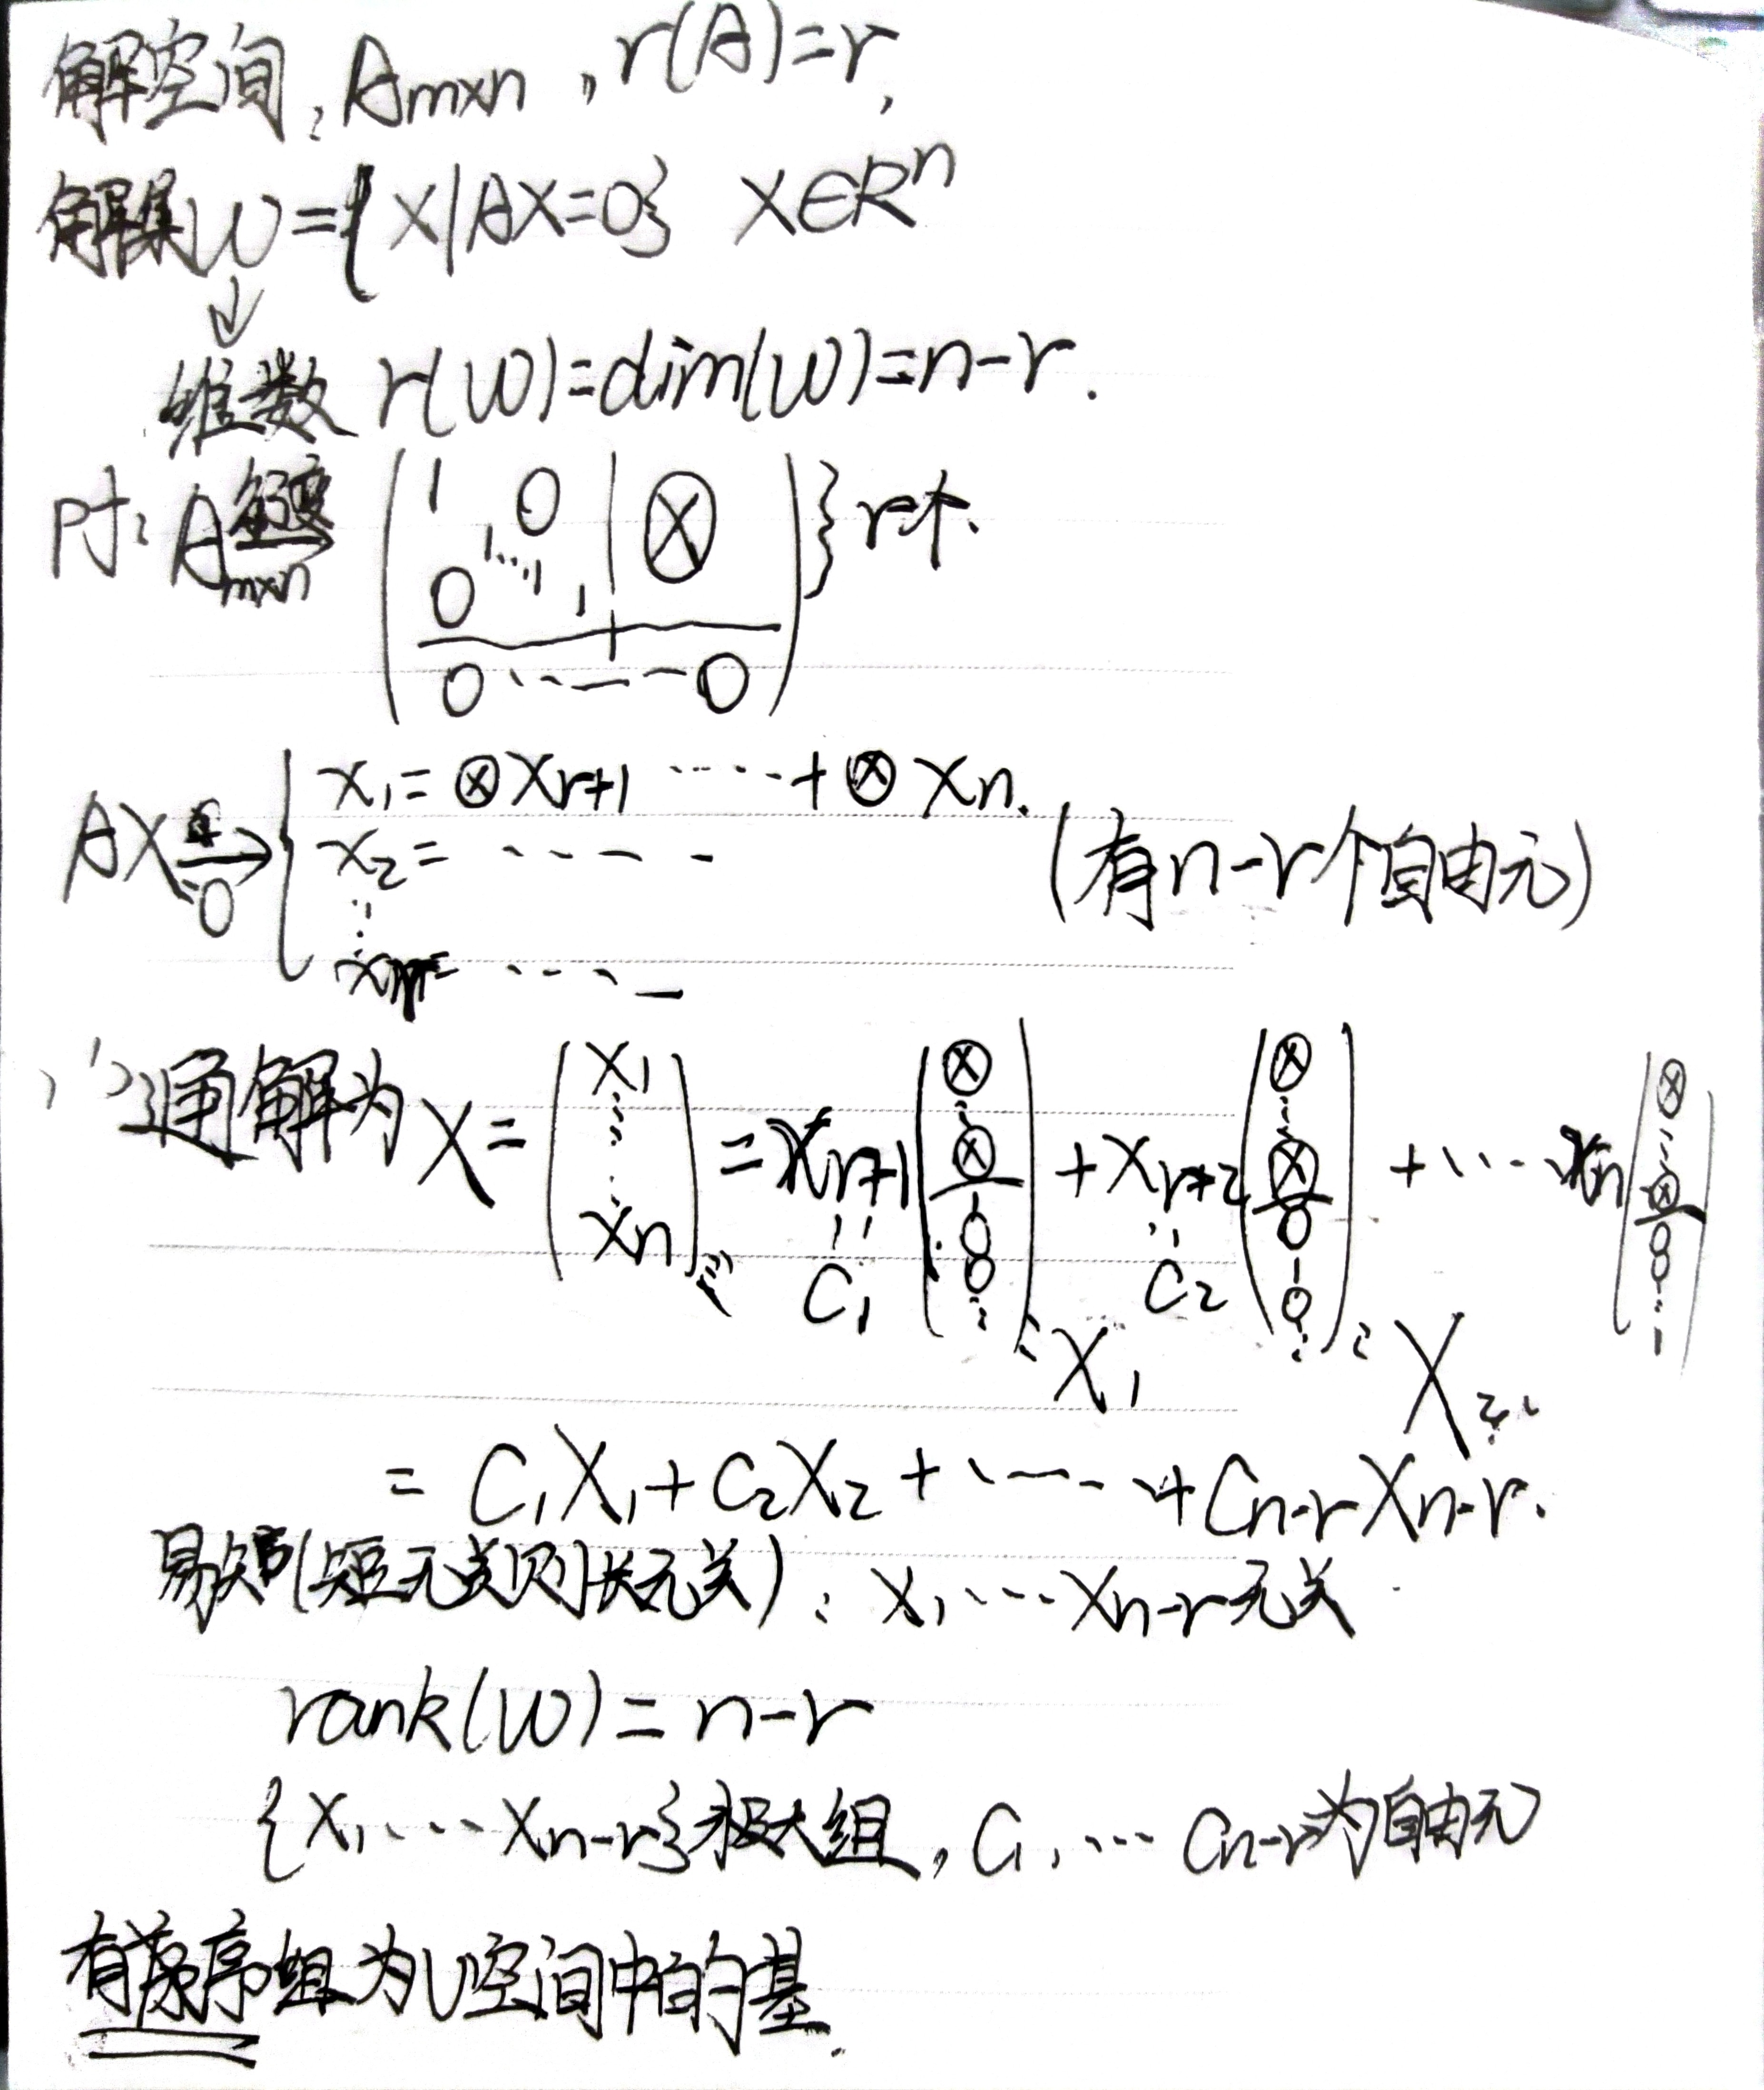 解空间: Am×n , r(A)=r,
解集W={X|AX=0} X∈R^n
↓
维数 r(W)=dim(W)=n-r.
Pf: Am×n 行变→ ( 1 0 | ⊗ ) } r个.
0 1 ... 1 , 1
0 ... 0
AX=0 → { x1=⊗xr+1 ..... +⊗xn.
x2= ..... (有n-r个自由元)
⋮
xr= .....
∴通解为 X = (x1 ⋮ xn) = xr+1 (⊗ ⋮ ⊗ 1 0 0 ⋮) + xr+2 (⊗ ⋮ ⊗ 0 1 0 ⋮) + ... xn (⊗ ⋮ ⊗ 0 0 ⋮ 1)
C1 C2
X1 X2.
= C1X1+C2X2+ ..... +Cn-rXn-r.
易知(短无关则长无关): X1, ... Xn-r无关
rank(W)=n-r
{X1, ... Xn-r}极大组, C1, ... Cn-r为自由元
有序组为U空间中的基.